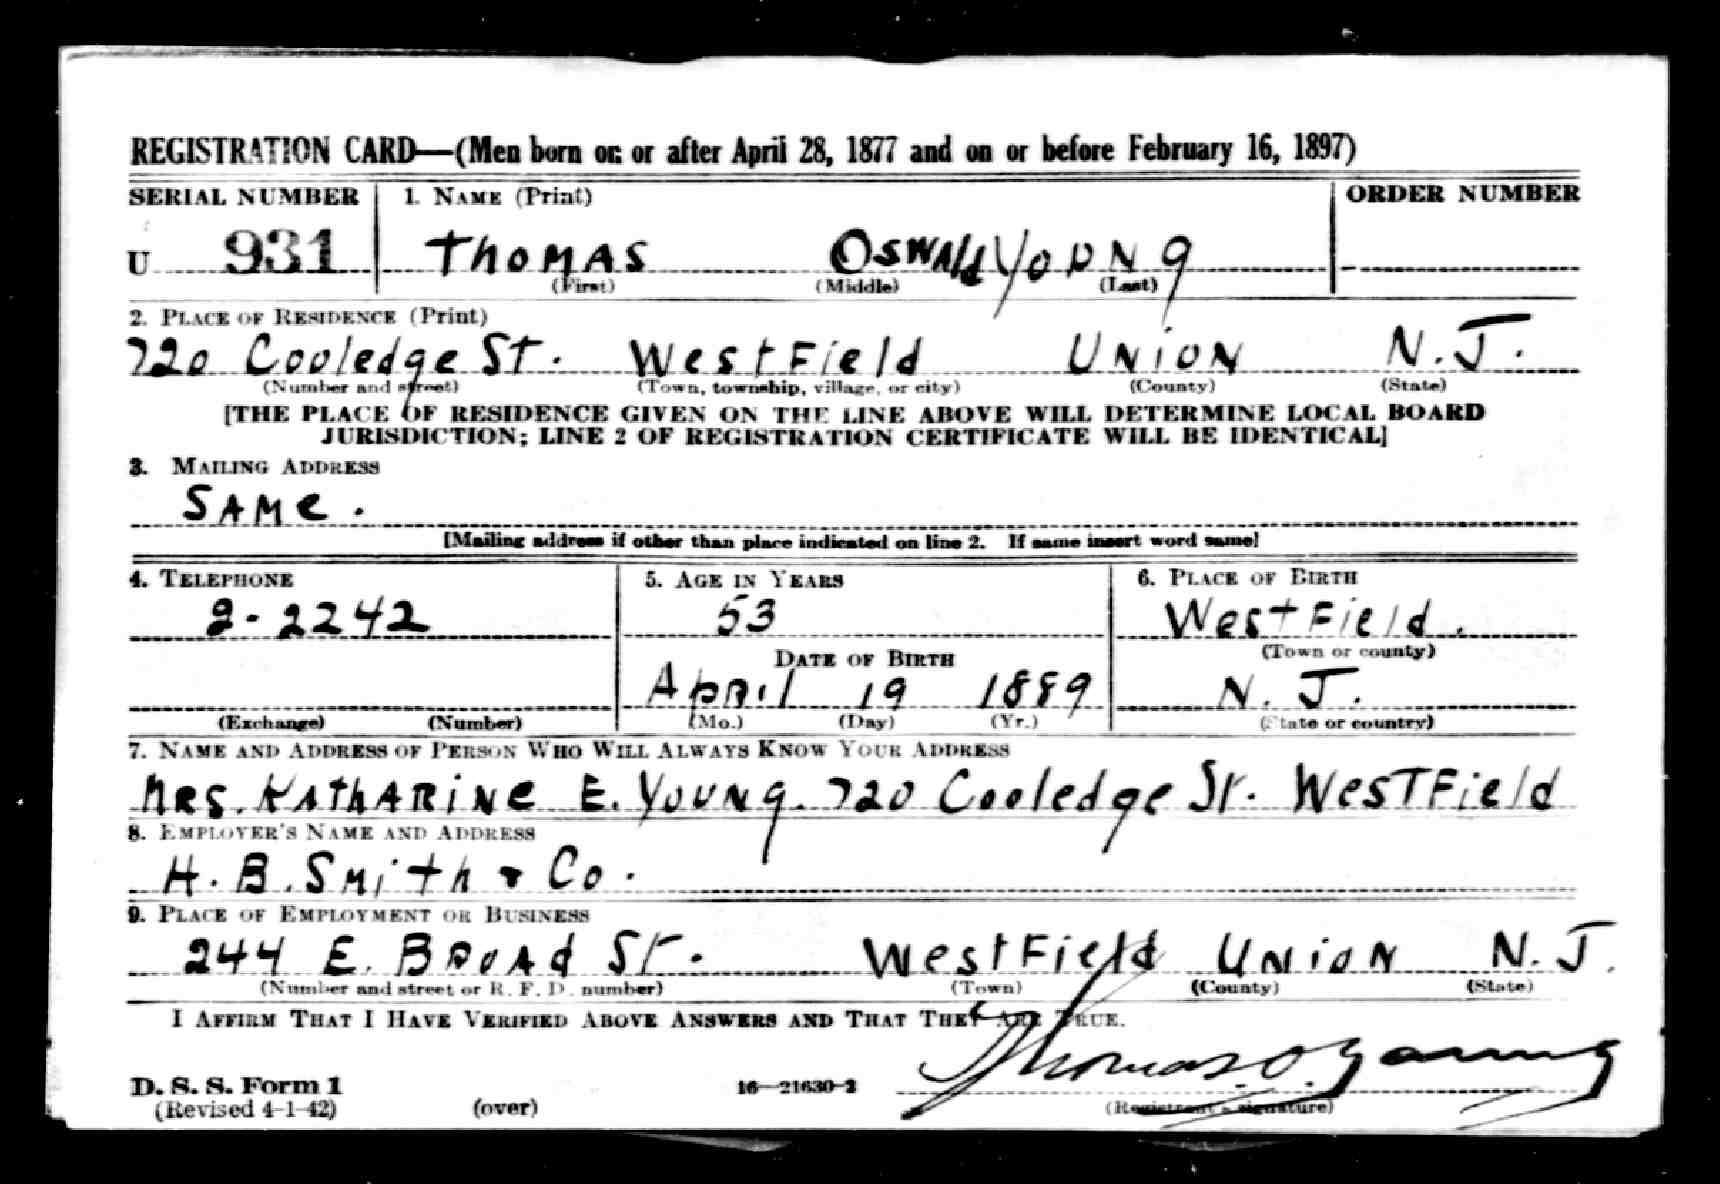 REGISTRATION CARD—(Men born on or after April 28, 1877 and on or before February 16, 1897)
SERIAL NUMBER 1. NAME (Print) ORDER NUMBER
U 931 THOMAS OSWAld YOUNG
(First) (Middle) (Last)
2. PLACE OF RESIDENCE (Print)
720 Cooledge St. WestField UNiON N.J.
(Number and street) (Town, township, village, or city) (County) (State)
[THE PLACE OF RESIDENCE GIVEN ON THE LINE ABOVE WILL DETERMINE LOCAL BOARD
JURISDICTION; LINE 2 OF REGISTRATION CERTIFICATE WILL BE IDENTICAL]
3. MAILING ADDRESS
SAMe.
[Mailing address if other than place indicated on line 2. If same insert word same]
4. TELEPHONE 5. AGE IN YEARS 6. PLACE OF BIRTH
2-2242 53 WestField.
DATE OF BIRTH (Town or county)
April 19 1889 N. J.
(Exchange) (Number) (Mo.) (Day) (Yr.) (State or country)
7. NAME AND ADDRESS OF PERSON WHO WILL ALWAYS KNOW YOUR ADDRESS
MRS. KAThARiNe E. YOUNG. 720 Cooledge St. WesTField
8. EMPLOYER'S NAME AND ADDRESS
H. B. SMith & Co.
9. PLACE OF EMPLOYMENT OR BUSINESS
244 E. BROAd ST. WestField UNiON N. J.
(Number and street or R. F. D. number) (Town) (County) (State)
I AFFIRM THAT I HAVE VERIFIED ABOVE ANSWERS AND THAT THEY ARE TRUE.
Thomas. O. Young
D. S. S. Form 1 16—21630-2
(Revised 4-1-42) (over) (Registrant's signature)